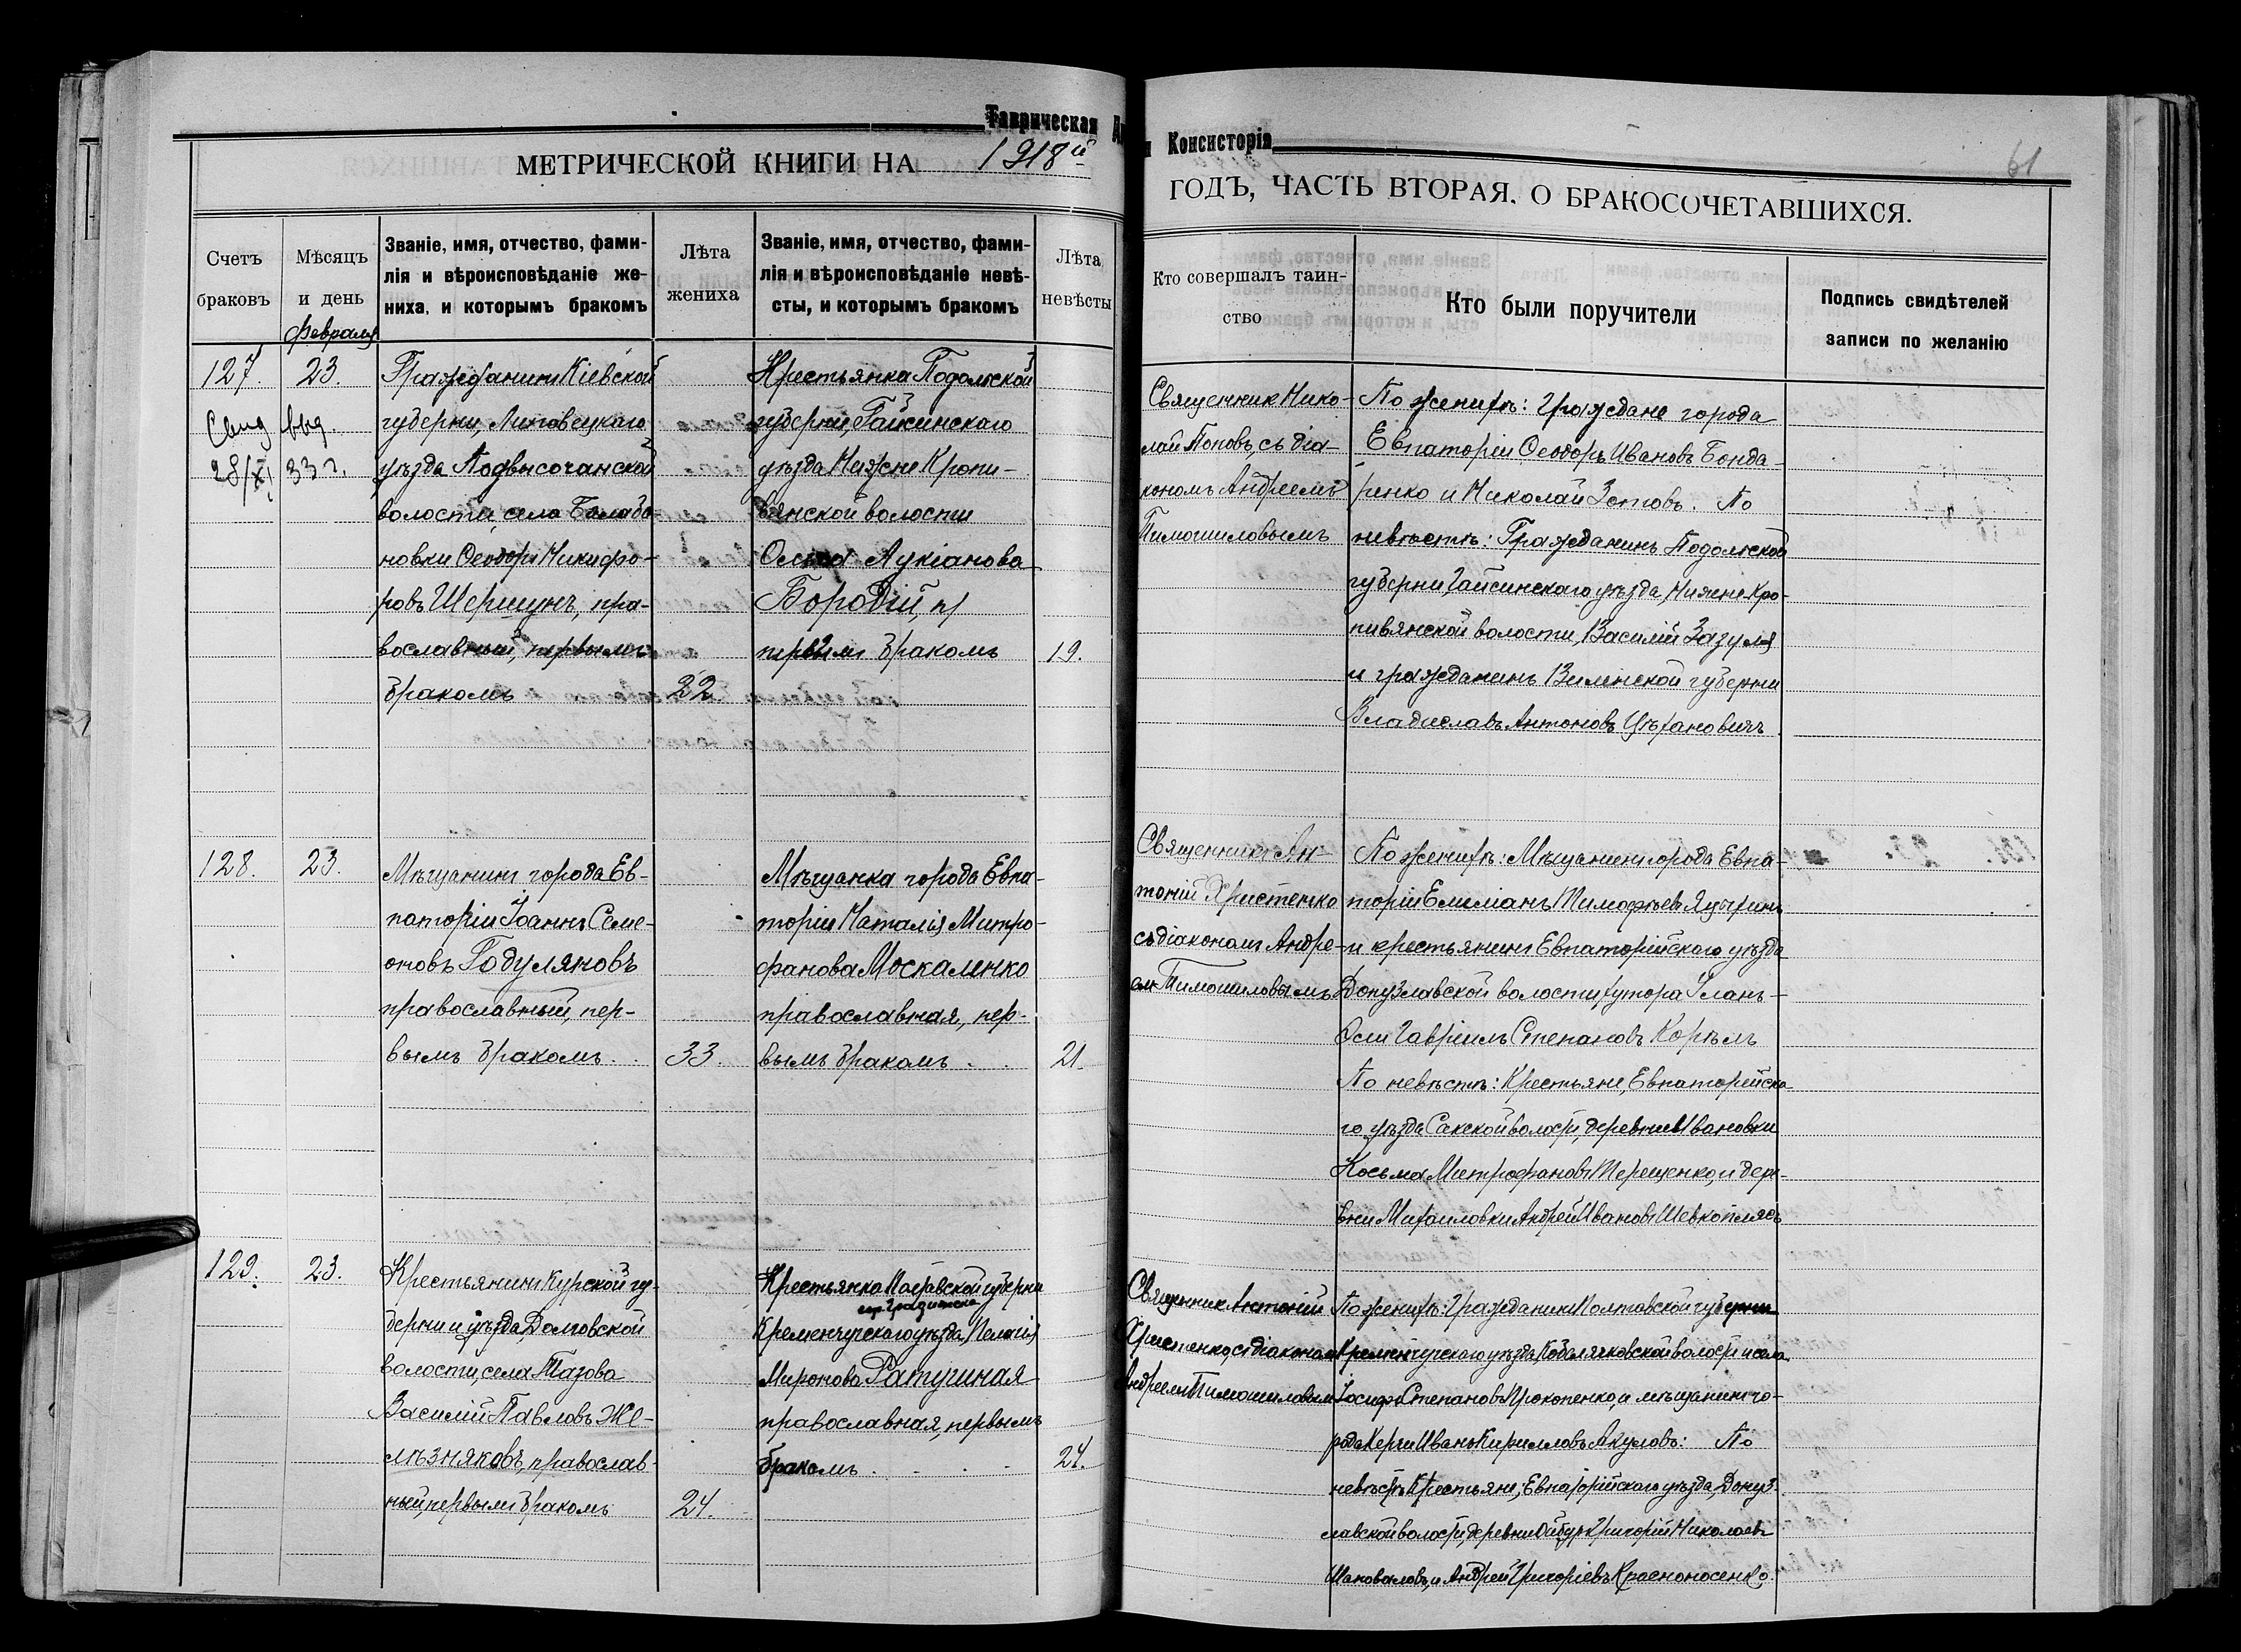 Таврическая
Консисторія
61
МЕТРИЧЕСКОЙ КНИГИ НА 1918й
ГОДЪ, ЧАСТЬ ВТОРАЯ, О БРАКОСОЧЕТАВШИХСЯ.
Счетъ
браковъ
Мѣсяцъ
и день
Февраля
Званіе, имя, отчество, фами-
лія и вѣроисповѣданіе же-
ниха, и которымъ бракомъ
Лѣта
жениха
Званіе, имя, отчество, фами-
лія и вѣроисповѣданіе невѣ-
сты, и которымъ бракомъ
Лѣта
невѣсты
Кто совершалъ таин-
ство
Кто были поручители
Подпись свидѣтелей
записи по желанію
127.
23.
Свид выд.
28/XI 33 г.
Гражданинъ Кіевской
губерни, Липовецкаго
уѣзда Подвысочанской
волости, села Балабо-
новки Ѳеодоръ Никифо-
ровъ Шершунъ, пра-
вославный, первымъ
бракомъ
32
Крестьянка Подольской
губерни, Гайсинскаго
уѣзда Нижне Кропи-
вянской волости
Ольга Лукіанова
Бородій, п/
первым бракомъ
19.
Священник Нико-
лай Поповъ, съ діа-
кономъ Андреемъ
Тимошиловымъ
По женихѣ: граждане города
Евпаторіи Ѳеодоръ Ивановъ Бонда-
ренко и Николай Зотовъ. По
невѣстѣ: Гражданинъ Подольской
губерни, Гайсинскаго уѣзда, Нижне Кро-
пивянской волости, Василій Загуля
и гражданинъ Виленской губерни
Владиславъ Антоновъ Цѣхановичъ
128.
23.
Мѣщанинъ города Ев-
паторіи Іоаннъ Семе-
оновъ Годуляновъ
православный, пер-
вымъ бракомъ
33.
Мѣщанка города Евпа-
торіи Наталія Митро-
фанова Москаленко
православная, пер-
вымъ бракомъ
21.
Священникъ Ан-
тоній Христенко
съ діакономъ Андре-
ем Тимошиловымъ
По женихѣ: Мѣщанинъ города Евпа-
торіи Емиліанъ Тимофѣевъ Яцухинъ
и крестьянинъ Евпаторійскаго уѣзда
Донузлавской волости хутора Уланъ-
Эли Гавріилъ Степановъ Корѣлъ
По невѣстѣ: Крестьяне, Евпаторейска-
го уѣзда Сакской волости, деревни Ивановки
Косьма Митрофановъ Терещенко, и дер-
вни Михаиловки Андрей Ивановъ Шевкоплясъ
129.
23.
Крестьянинъ Курской гу-
берни и уѣзда, Долговской
волости, села Тазова
Василій Павловъ Же-
лѣзняковъ, православ-
ный, первымъ бракомъ
24.
Крестьянка Полтавской губерни
гор. Градижска
Кременчугскаго уѣзда, Пелагія
Миронова Ратушная
православная, первымъ
бракомъ
24.
Священник Антоній
Христенко, съ діаконом
Андреем Тимошиловым
По женихѣ: Гражданинъ Полтавской губерни
Кременчугскаго уѣзда, Кобелячковской волости и села
Іосифъ Степановъ Прокопенко, и мѣщанинъ го-
рода Керчи Иванъ Кирилловъ Акуловъ: По
невѣстѣ Крестьяне, Евпаторійскаго уѣзда, Донуз-
лавской волости, деревни Ойбуръ Григорій Николаевъ
Шаповаловъ, и Андрей Григоріевъ Красноносенко